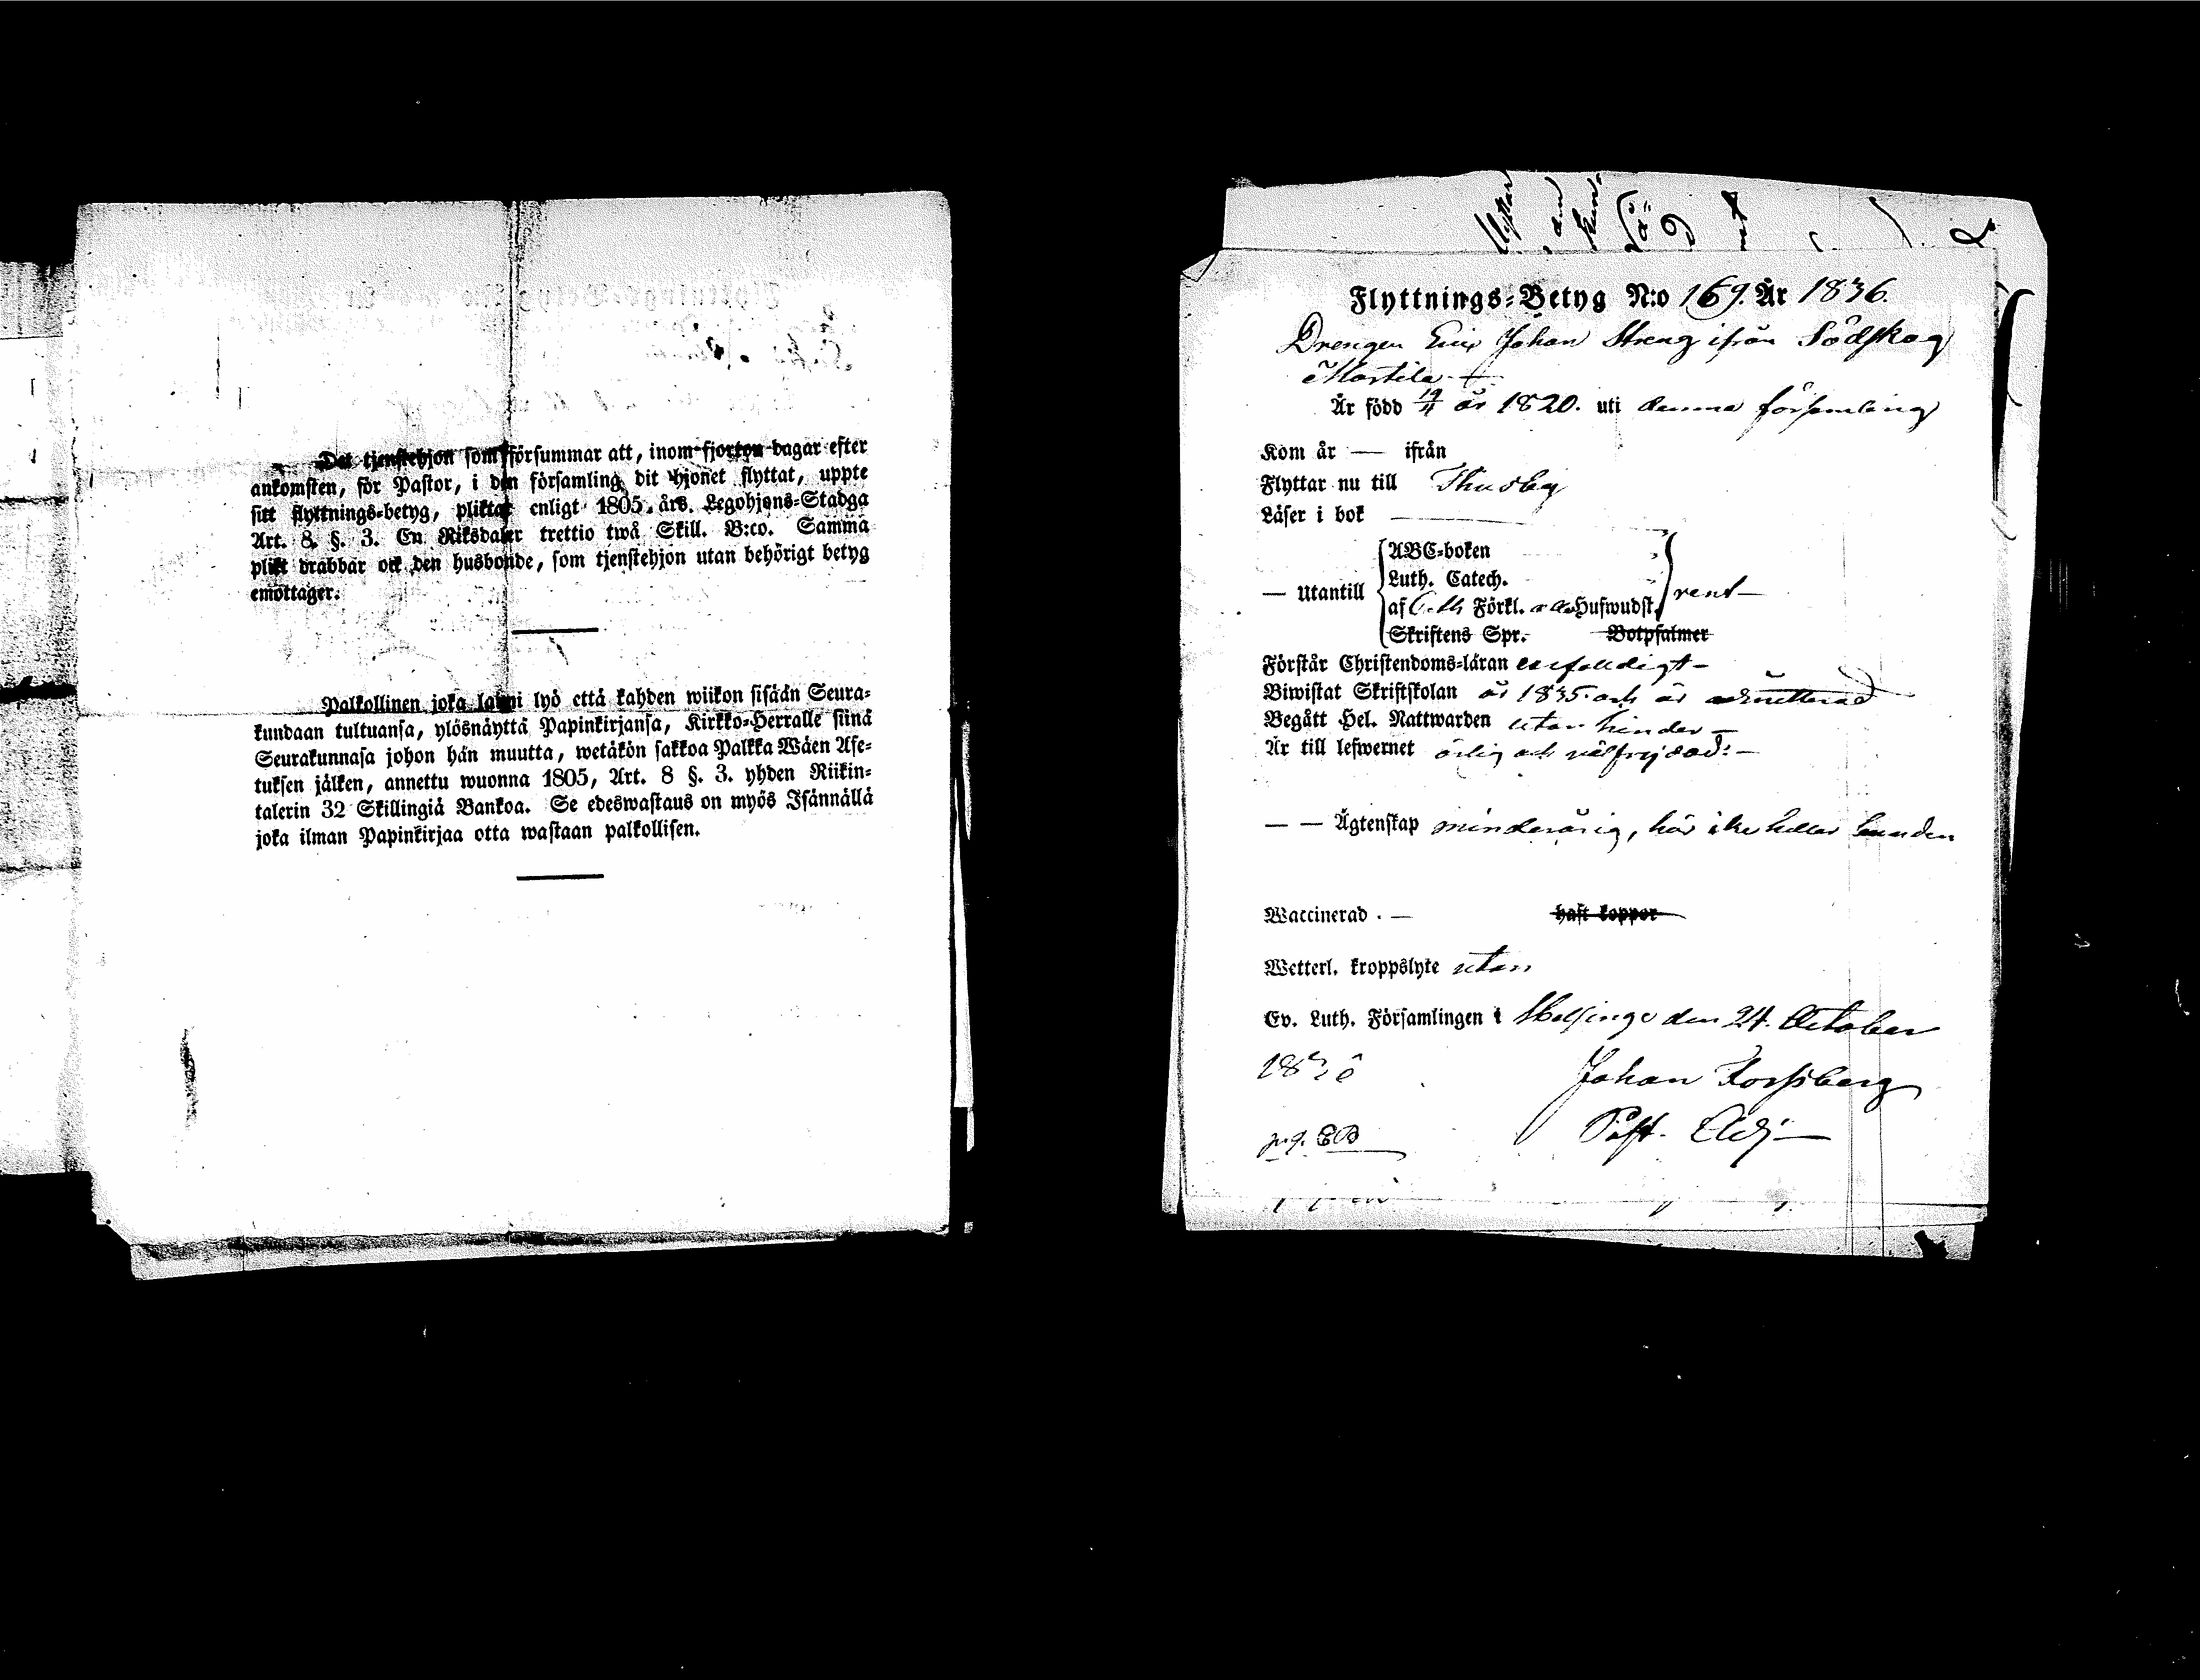 Det tjenstehjon som försummar att, inom fjorton dagar efter
ankomsten, för Pastor, i den församling dit hjonet flyttat, uppte
sitt flyttnings-betyg, pliktar enligt 1805 års Legohjons-Stadga
Art. 8. §. 3. En Riksdaler trettio twå Skill. B:co. Samma
plikt drabbar ock den husbonde, som tjenstehjon utan behörigt betyg
emottager.
Palkollinen joka laimi lyö että kahden wiikon sisään Seura-
kundaan tultuansa, ylösnäyttä Papinkirjansa, Kirkko-Herralle siinä
Seurakunnasa johon hän muutta, wetäkön sakkoa Palkka Wäen Ase-
tuksen jälken, annettu wuonna 1805, Art. 8 §. 3. yhden Riikin-
talerin 32 Skillingiä Bankoa. Se edeswastaus on myös Isännällä
joka ilman Papinkirjaa otta wastaan palkollisen.
Flyttnings-Betyg N:o 169. År 1836.
Drengen Eric Johan Streng ifrån Södskog
Mårtila
Är född 19/4 år 1820. uti denna församling
Kom år — ifrån
Flyttar nu till Thusby
Läser i bok
— Utantill
ABC-boken
Luth. Catech.
af Förkl. Hufwudst. rent —
Skriftens Spr. Botpsalmer
Förstår Christendoms-läran enfaldigt —
Biwistat Skriftskolan år 1835 och är admitterad
Begått Hel. Nattwarden utan hinder —
Är till lefwernet ärlig och välfrejdad: —
— — Ägtenskap minderårig, här ike heller bunden
Waccinerad . — haft koppor
Wetterl. kroppslyte utan
Ev. Luth. Församlingen i Helsinge den 24. October
1836
Johan Forssberg
Past. Adj —